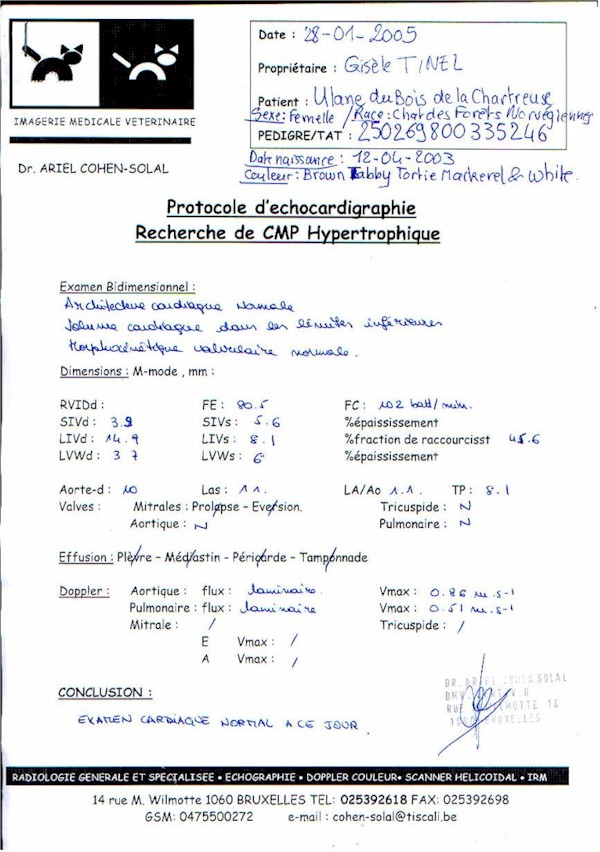 IMAGERIE MEDICALE VETERINAIRE
Dr. ARIEL COHEN-SOLAL
Date : 28-01-2005
Propriétaire : Gisèle TINEL
Patient : Ulane du Bois de la Chartreuse
Sexe: Femelle / Race: Chat des Forêts Norvégiennes
PEDIGRE/TAT : 250269800335246
Date naissance : 12-04-2003
Couleur: Brown Tabby Tortie Mackerel & White.
Protocole d'echocardigraphie
Recherche de CMP Hypertrophique
Examen Bidimensionnel :
Architecture cardiaque normale
Volume cardiaque dans les limites inférieures
valvulaire normale.
Dimensions : M-mode , mm :
RVIDd : FE : 80.5 FC : 102 batt/min.
SIVd : 3.9 SIVs : 5.6 %épaississement
LIVd : 14.9 LIVs : 8.1 %fraction de raccourcisst 45.6
LVWd : 3 7 LVWs : 6 %épaississement
Aorte-d : 10 Las : 11. LA/Ao 1.1. TP : 8.1
Valves : Mitrales : Prolapse - Eversion. Tricuspide : N
Aortique : N Pulmonaire : N
Effusion : Plèvre - Médiastin - Péricarde - Tamponnade
Doppler : Aortique : flux : laminaire. Vmax : 0.86 m.s-1
Pulmonaire : flux : laminaire Vmax : 0.51 m.s-1
Mitrale : / Tricuspide : /
E Vmax : /
A Vmax : /
CONCLUSION :
EXAMEN CARDIAQUE NORMAL A CE JOUR.
DR. ARIEL COHEN SOLAL
RUE WILMOTTE 14
1060 BRUXELLES
RADIOLOGIE GENERALE ET SPECIALISEE • ECHOGRAPHIE • DOPPLER COULEUR • SCANNER HELICOIDAL • IRM
14 rue M. Wilmotte 1060 BRUXELLES TEL: 025392618 FAX: 025392698
GSM: 0475500272 e-mail : cohen-solal@tiscali.be